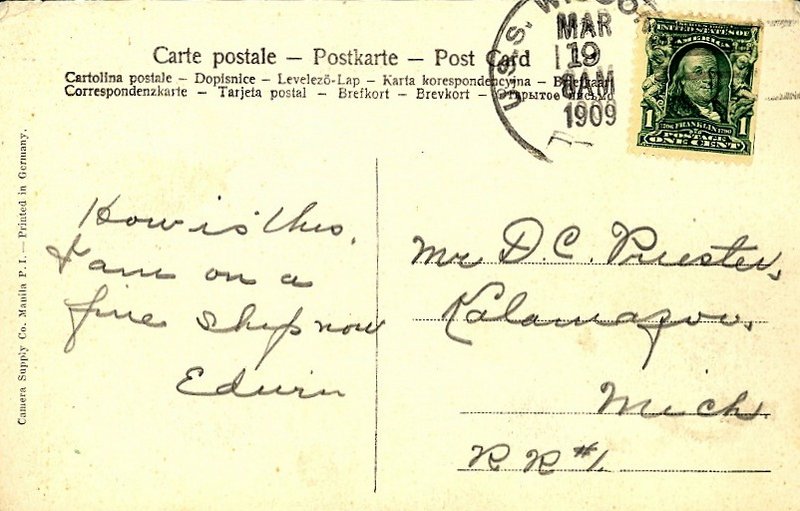 Carte postale – Postkarte – Post Card
Cartolina postale – Dopisnice – Levelező-Lap – Karta korespondencyjna – Briefkaart
Correspondenzkarte – Tarjeta postal – Brefkort – Brevkort – Открытое письмо
U.S.S. WISCO
MAR
19
8 AM
1909
UNITED STATES OF
AMERICA
1 1
FRANKLIN
POSTAGE
ONE CENT
Camera Supply Co. Manila P. I. — Printed in Germany.
How is this.
I am on a
fine ship now
Edwin
Mr D. C. Priester,
Kalamazoo,
Mich.
R R #1.